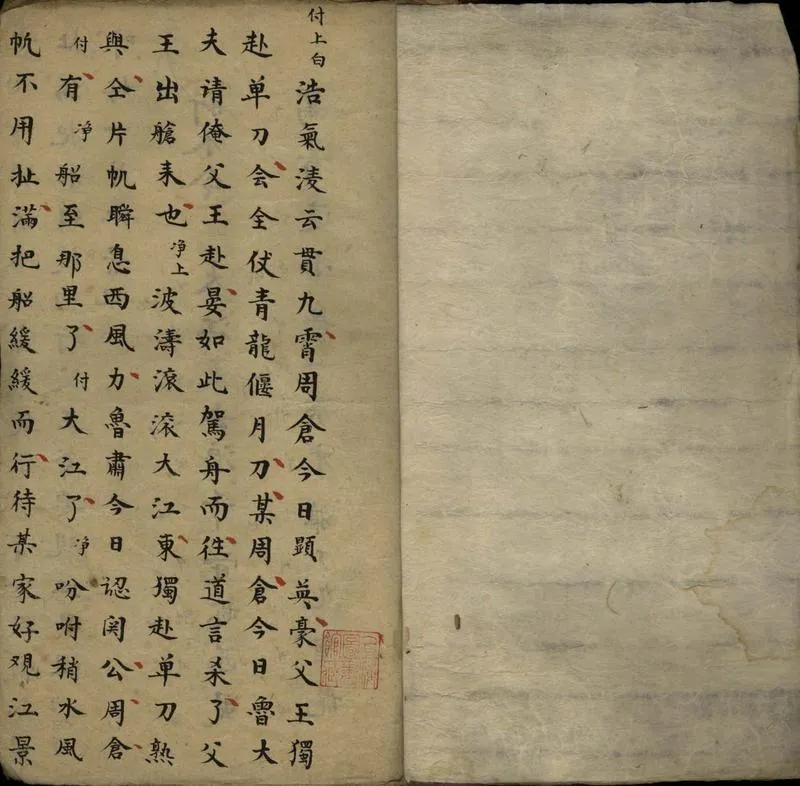 付上白 浩氣凌云貫九霄周倉今日顕英豪父王獨
赴单刀会全仗青龍偃月刀某周倉今日魯大
夫请俺父王赴晏如此駕舟而往道言未了父
王出艙来也 净上 波濤滾滾大江東獨赴单刀熟
與仝片帆瞬息西風力魯肅今日認関公周倉
付 有 净 船至那里了 付 大江了 净 吩咐稍水風
帆不用扯滿把船緩緩而行待某家好观江景